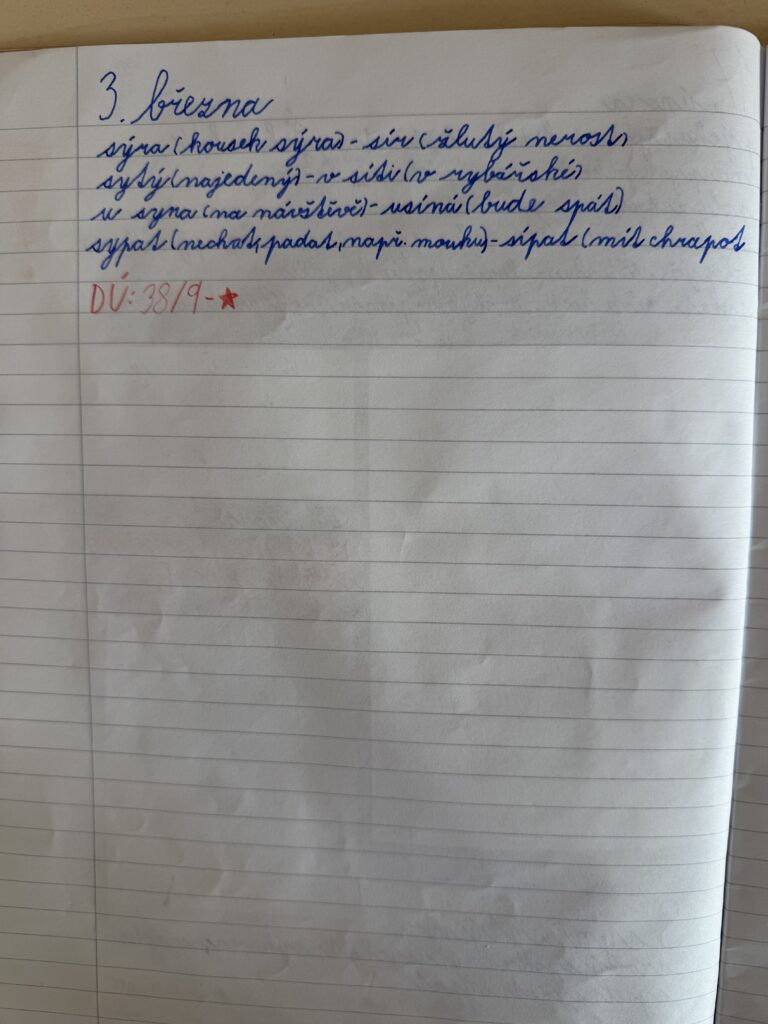 3. března
sýra (kousek sýra) - sír (žlutý nerost)
sytý (najedený) - v síti (v rybářské)
u syna (na návštěvě) - usíná (bude spát)
sypat (nechat padat, např. mouku) - sípat (mít chrapot
DÚ: 38/9 - ★